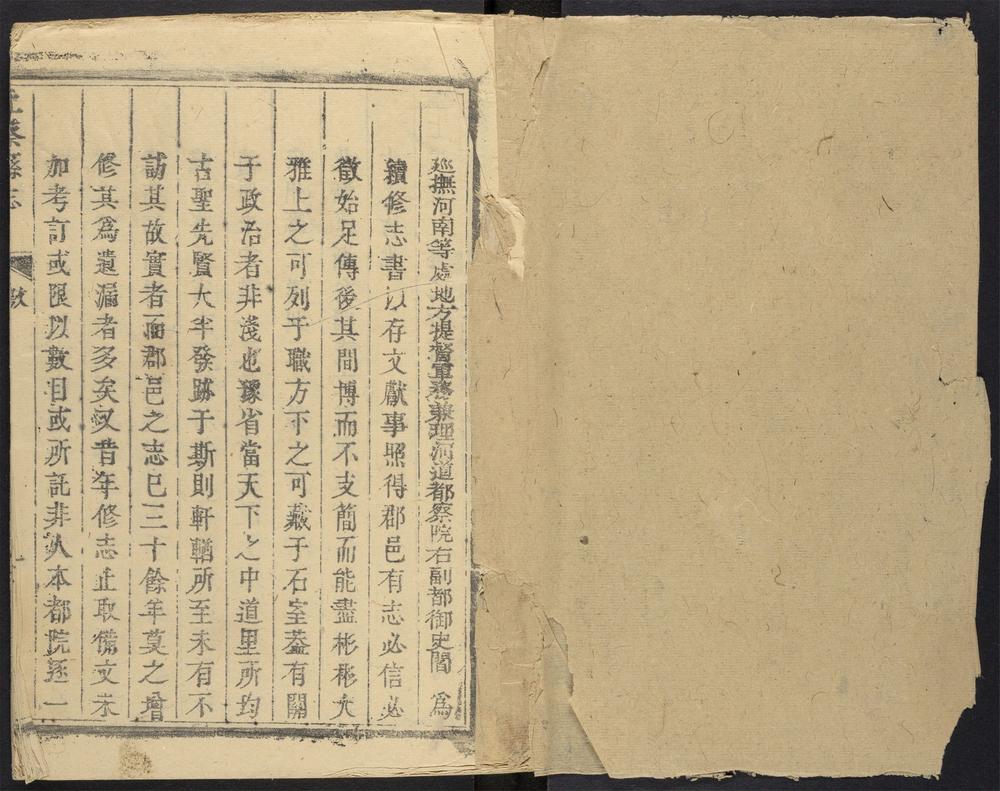 巡撫河南等處地方提督軍務兼理河道都察院右副都御史閻 為
續修志書以存文獻事照得郡邑有志必信必
徵始足傳後其間博而不支簡而能盡彬彬大
雅上之可列于職方下之可藏于石室葢有關
于政治者非淺也豫省當天下之中道里所均
古聖先賢大半發跡于斯則軒輶所至未有不
訪其故實者而郡邑之志已三十餘年莫之增
修其爲遺漏者多矣又昔年修志止取備文未
加考訂或限以數目或所託非人本都院逐一
上蔡縣志